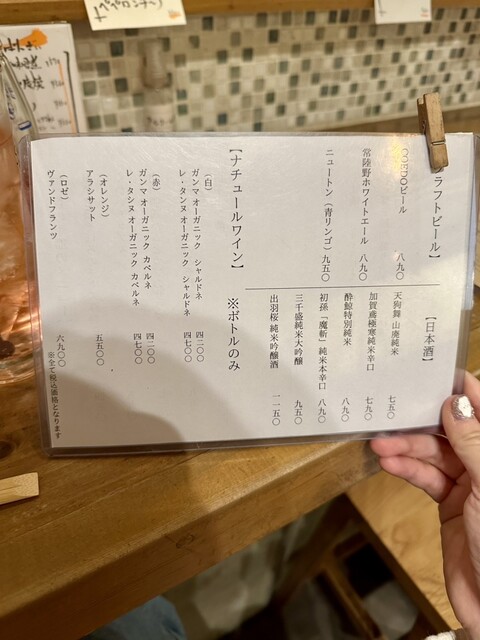 ラフトビール】
COEDOビール 八九〇
常陸野ホワイトエール 八九〇
ニュートン（青リンゴ） 九五〇
【日本酒】
天狗舞 山廃純米 七五〇
加賀鳶極寒純米辛口 七九〇
酔鯨特別純米 八九〇
初孫「魔斬」純米本辛口 八九〇
三千盛純米大吟醸 九五〇
出羽桜 純米吟醸酒 一一五〇
【ナチュールワイン】 ※ボトルのみ
（白）
ガンマ オーガニック シャルドネ 四二〇〇
レ・タンヌ オーガニック シャルドネ 四七〇〇
（赤）
ガンマ オーガニック カベルネ 四二〇〇
レ・タシヌ オーガニック カベルネ 四七〇〇
（オレンジ）
アラシサット 五五〇〇
（ロゼ）
ヴァンドフランツ 六九〇〇
※全て税込価格となります